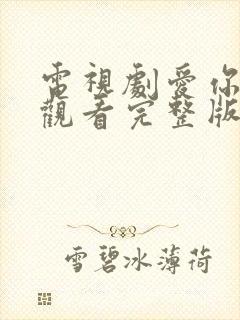 電視劇愛你
觀看完整版
雪碧冰薄荷